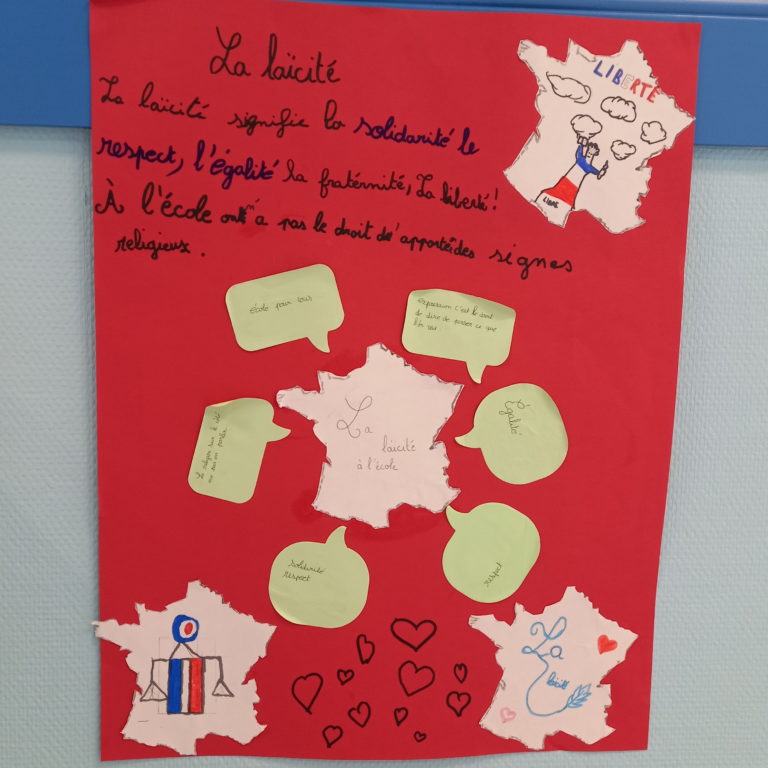 La laïcité
La laïcité signifie la solidarité le
respect, l'égalité la fraternité, La liberté!
À l'école on n'a pas le droit d'apporté des signes
religieux.
LIBERTÉ
LIBRE
école pour tous
expression c'est le droit
de dire de penser ce que
l'on veut
Égalité
La religion sur le côté
La
laïcité
à l'école
solidarité
respect
respect
La
laïcité